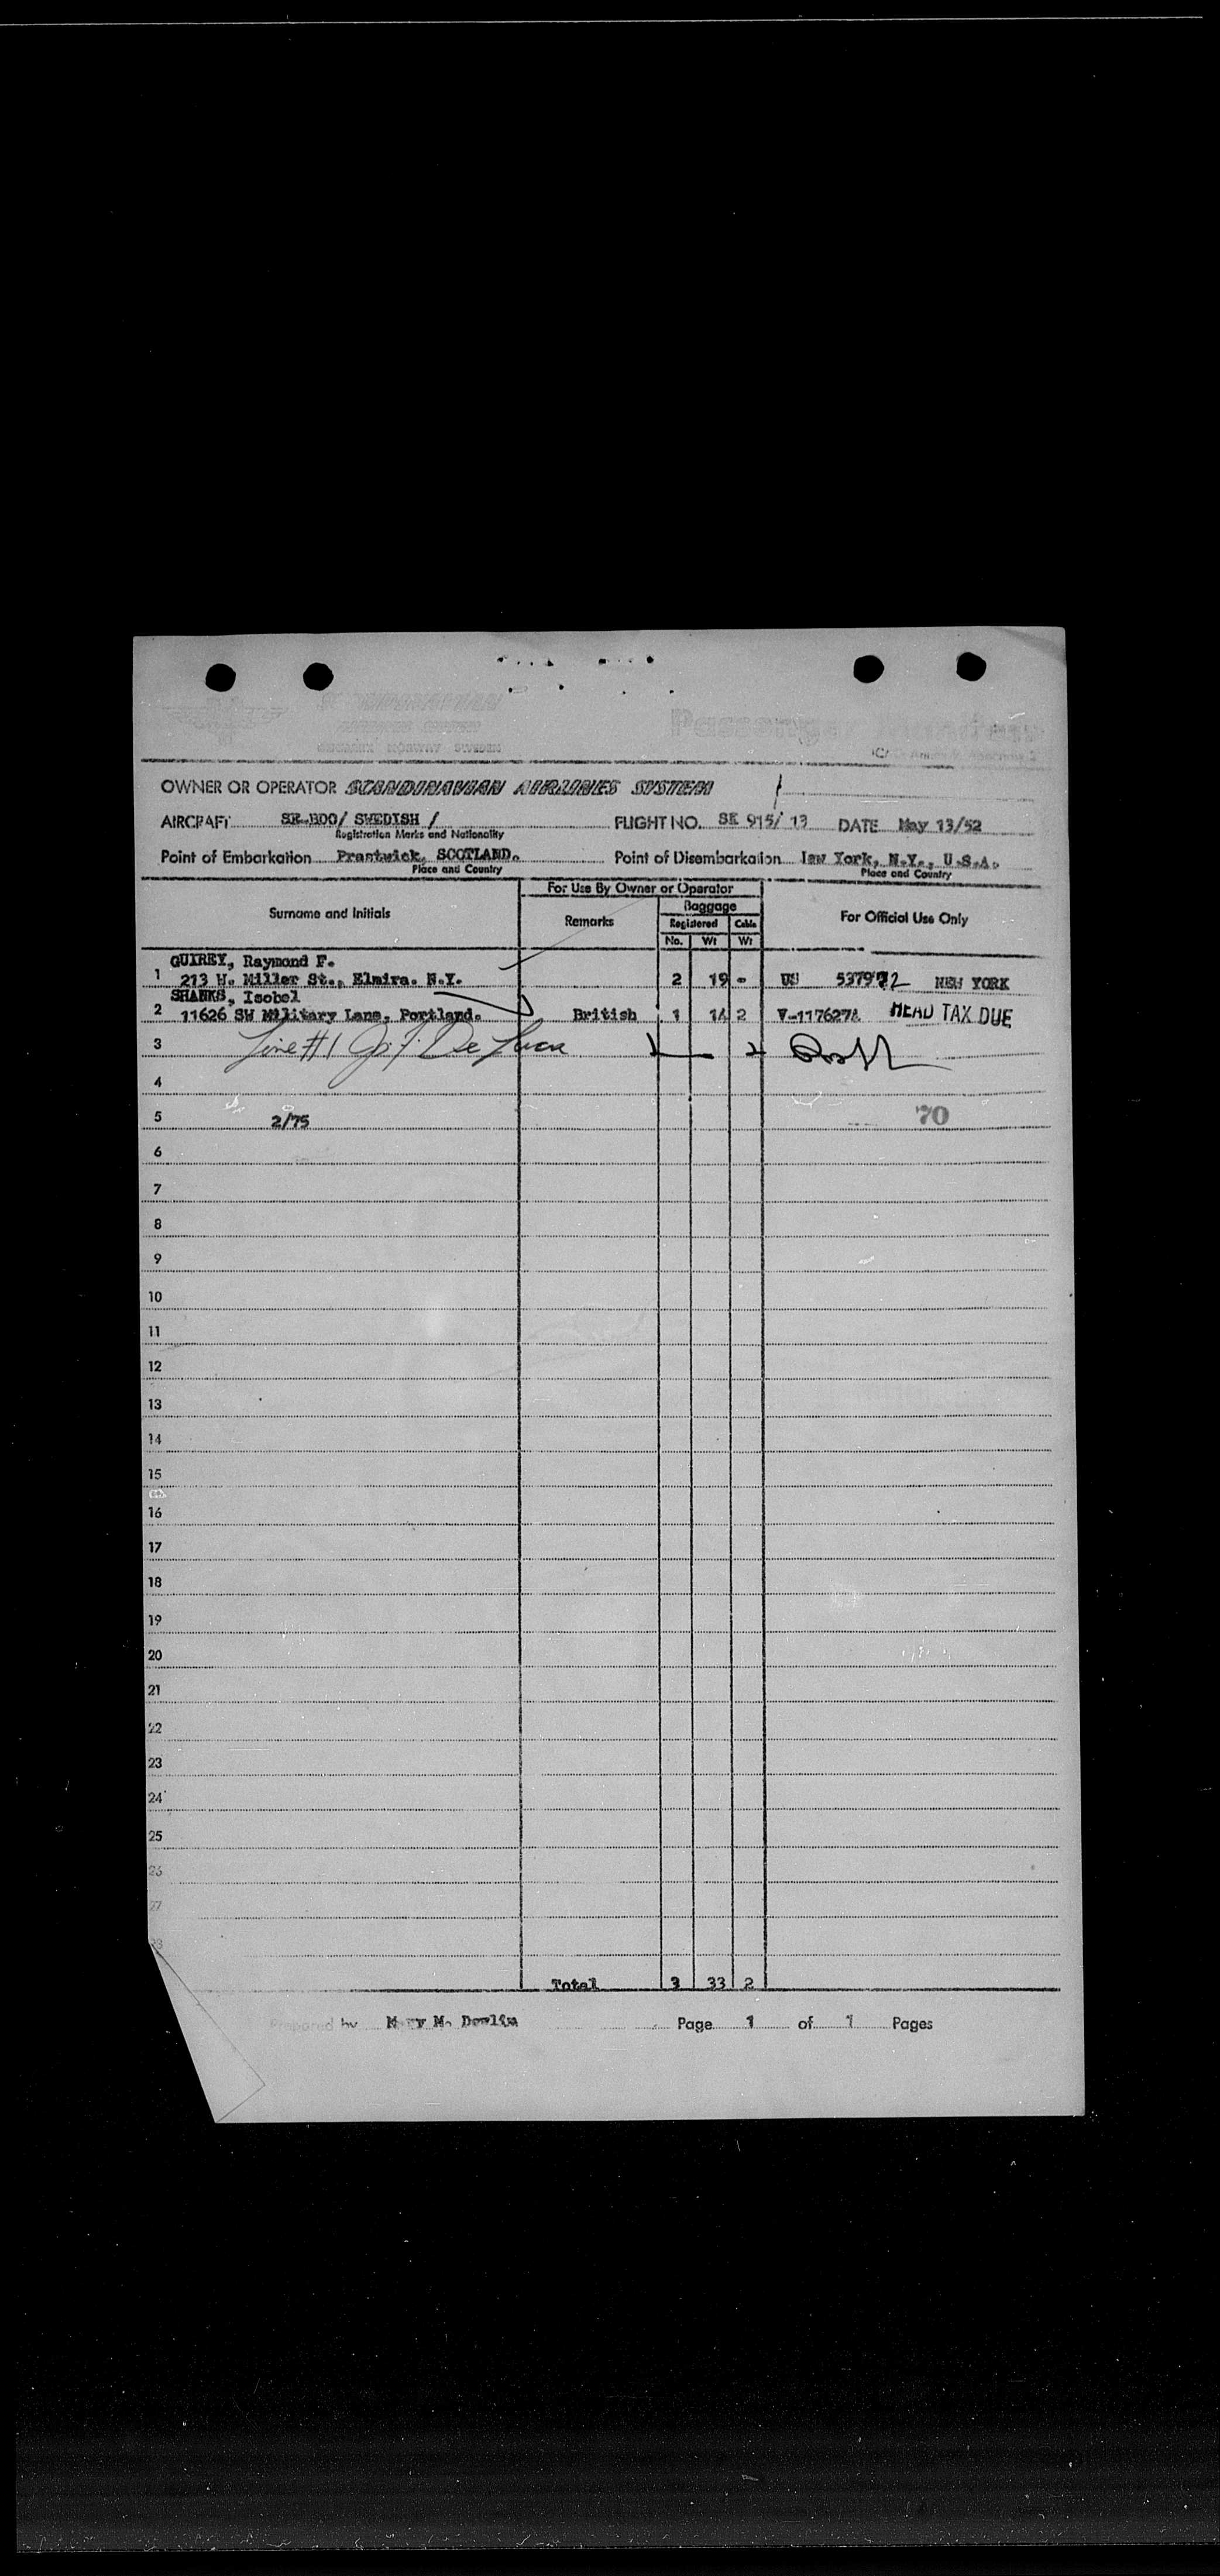 Passenger Manifest
DENMARK NORWAY SWEDEN
OWNER OR OPERATOR SCANDINAVIAN AIRLINES SYSTEM
AIRCRAFT SE-BOO/ SWEDISH / FLIGHT NO. SK 915/ 13 DATE May 13/52
Registration Marks and Nationality
Point of Embarkation Prestwick, SCOTLAND. Point of Disembarkation New York, N.Y., U.S.A.
Place and Country Place and Country
For Use By Owner or Operator
Surname and Initials Remarks Baggage For Official Use Only
Registered Cabin
No. Wt Wt
QUIREY, Raymond F.
1 213 W. Miller St., Elmira. N.Y. 2 19 - US NEW YORK
SHANKS, Isobel
2 11626 SW Military Lane, Portland. British 1 14 2 HEAD TAX DUE
3 Line #1 De Luca
4
5 2/75 70
6
7
8
9
10
11
12
13
14
15
16
17
18
19
20
21
22
23
24
25
26
27
28
Total 3 33 2
Prepared by Mary M. Page 1 of 1 Pages